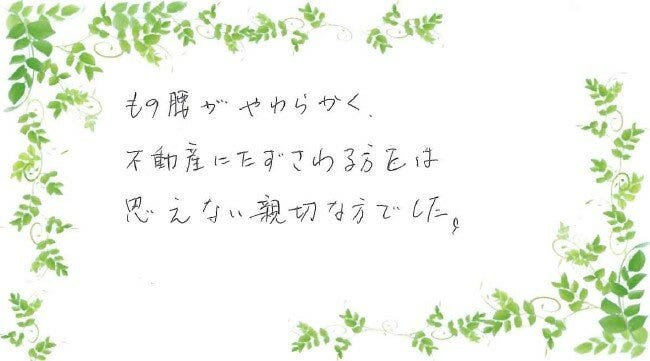 もの腰がやわらかく、
不動産にたずさわる方とは
思えない親切な方でした。